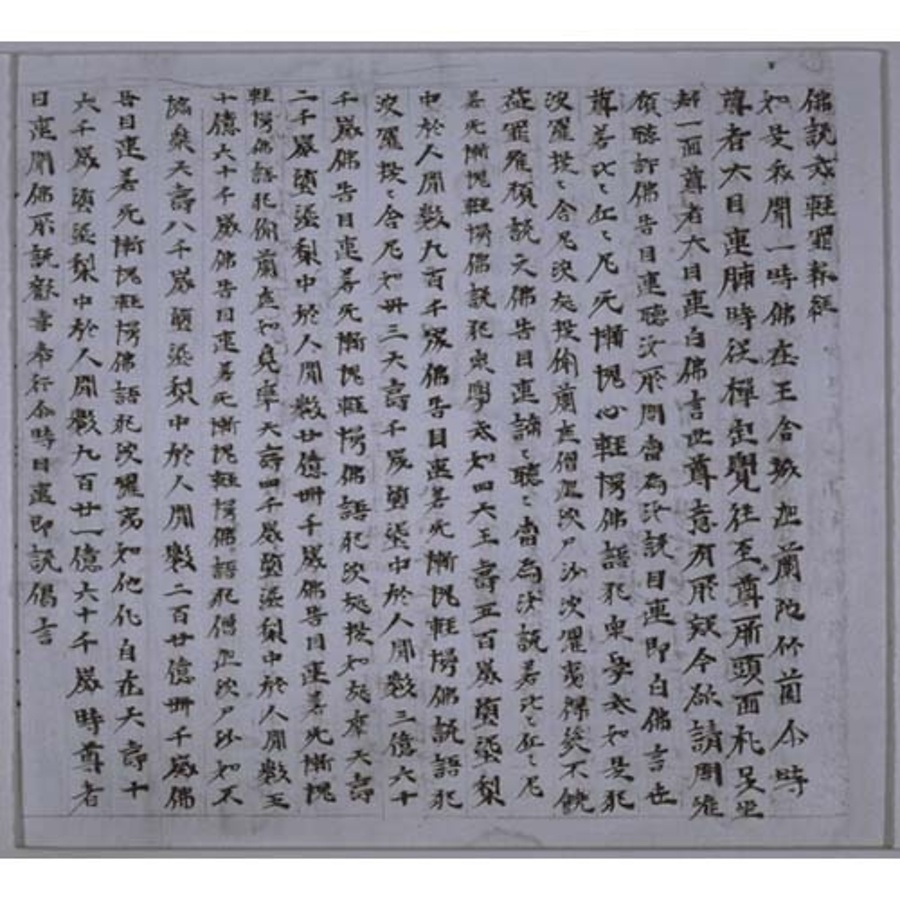 佛說戒輕罪報經
如是我聞一時佛在王舍城迦蘭陀竹薗尒時
尊者大目連脯時從禪定覺往至尊所頭面礼足坐
却一面尊者大目連白佛言世尊意有所疑今欲請問唯
願聽許佛告目連聽汝所問當為汝說目連即白佛言世
尊若比〻丘〻尼无慚愧心輕慢佛語犯衆學戒如是犯
波羅提〻舍尼波夜提偷蘭遮僧伽波尸沙波羅夷得幾不饒
益罪唯願說之佛告目連諦〻聽〻當為汝說若比〻丘〻尼
若无慚愧輕慢佛說犯衆學戒如四天王壽五百歲墮泥梨
中於人間數九百千歲佛告目連若无慚愧輕慢佛說語犯
波羅提〻舍尼如卅三天壽千歲墮泥中於人間數三億六十
千歲佛告目連若无慚愧輕慢佛語犯波夜提如夜摩天壽
二千歲墮泥梨中於人間數廿億卌千歲佛告目連若无慚愧
輕慢佛語犯偷蘭遮如兜率天壽四千歲墮泥梨中於人間數五
十億六十千歲佛告目連若无慚愧輕慢佛語犯僧伽波尸沙如不
憍樂天壽八千歲墮泥梨中於人間數二百廿億卌千歲佛
告目連若无慚愧輕慢佛語犯波羅夷如他化自在天壽十
六千歲墮泥梨中於人間數九百廿一億六十千歲時尊者
目連聞佛所說歡喜奉行尒時目連即說偈言